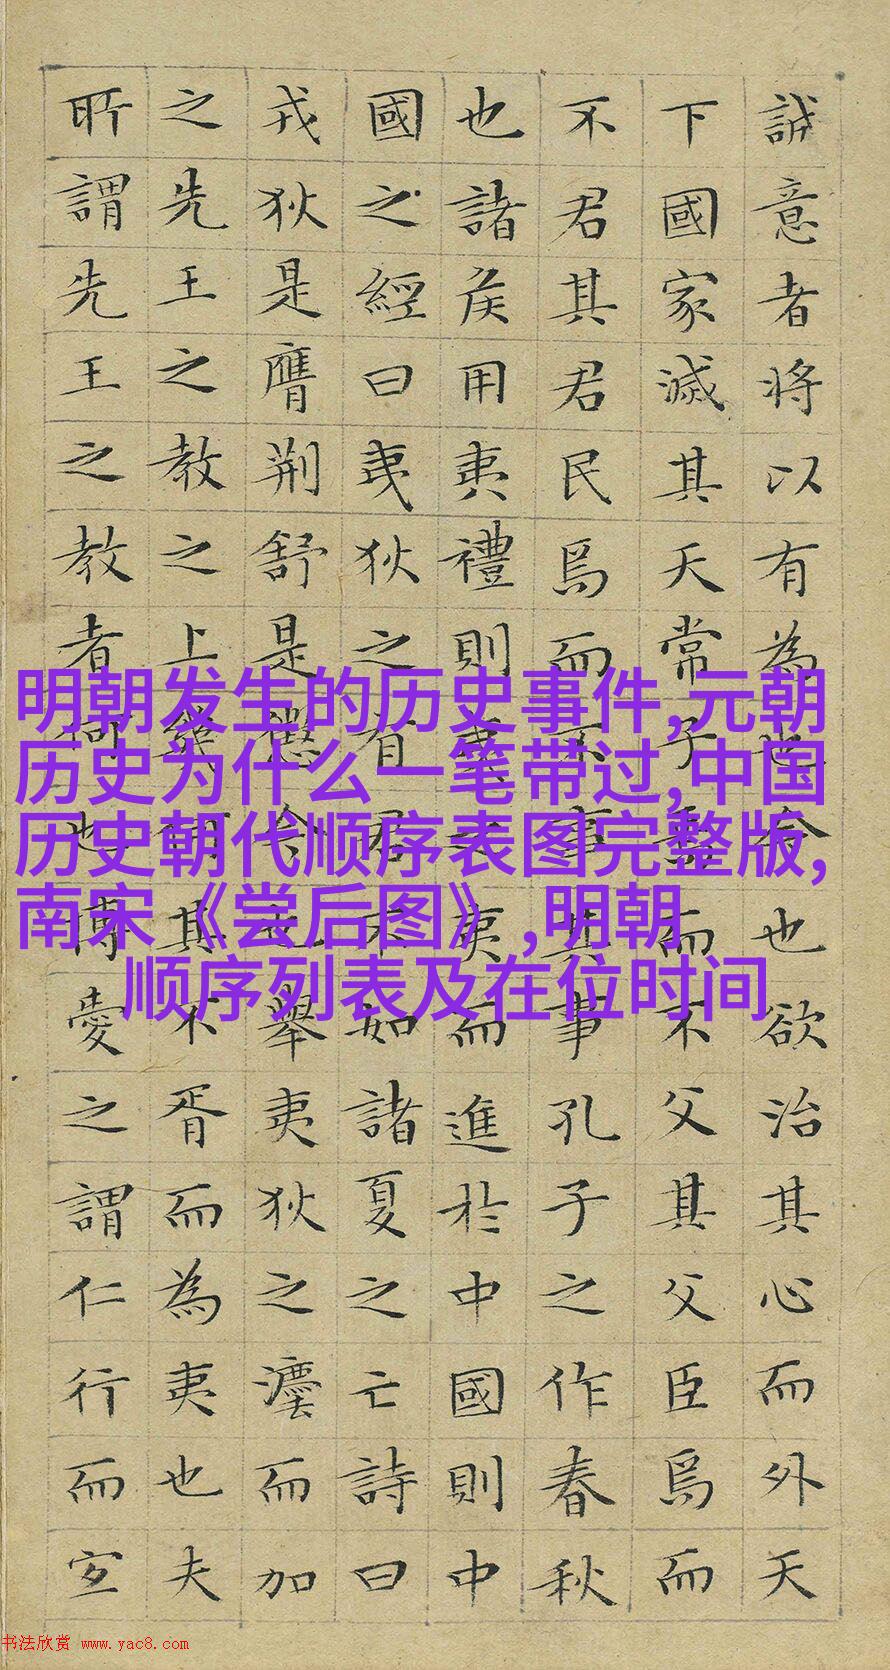 誠意者将以有為也今也欲治其心而外天
下國家滅其天常子焉而不父其父臣焉而
不君其君民焉而不事其事孔子之作春秋
也諸侯用夷禮則夷之夷而進於中國則中
國之經曰夷狄之有君不如諸夏之亡詩曰
戎狄是膺荆舒是懲今也舉夷狄之灋而加
之先王之教之上幾何其不胥而為夷也夫
所謂先王之教者何也博愛之謂仁行而宜
明朝发生的历史事件,元朝
历史为什么一笔带过,中国
历史朝代顺序表图完整版,
南宋《尝后图》,明朝
顺序列表及在位时间
书法欣赏 www.yac8.com